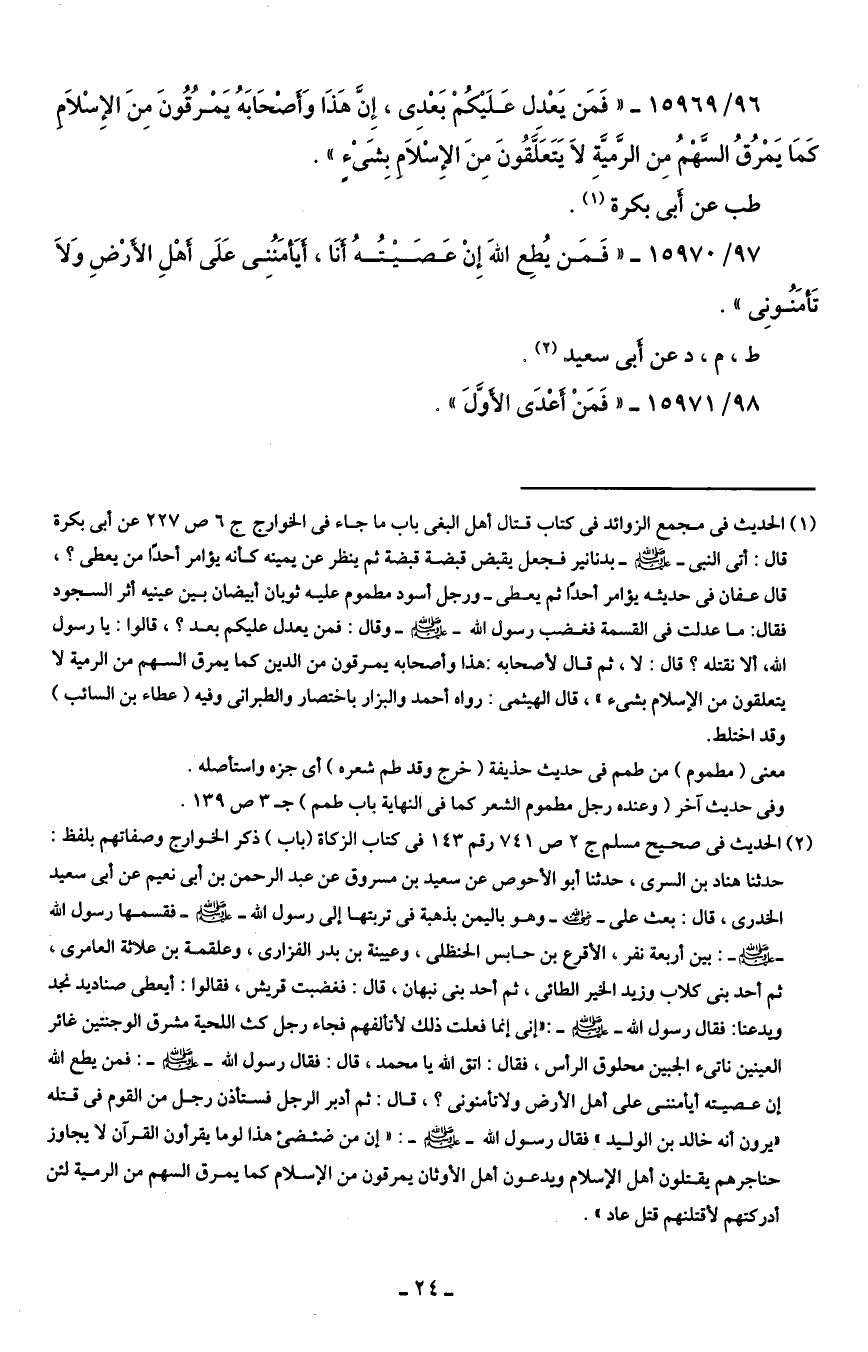 ١٥٩٦٩/٩٦ ـ « فَمَن يَعْدِل عَلَيْكُمْ بَعْدِى ، إِنَّ هَذَا وَأَصْحَابَهُ يَمْرُقُونَ مِنَ الإِسْلاَمِ
كَمَا يَمْرُقُ السَّهْمُ مِن الرَّمِيَّةِ لاَ يَتَعَلَّقُونَ مِنَ الإِسْلاَمِ بِشَىْءٍ » .
طب عن أَبى بكرة (١) .
١٥٩٧٠/٩٧ ـ « فَمَن يُطِع اللهَ إِنْ عَصَيْتُهُ أَنَا ، أَيَأمَنُنِى عَلَى أَهْلِ الأَرْضِ وَلاَ
تَأمَنُونِى » .
ط ، م ، د عن أَبى سعيد (٢) .
١٥٩٧١/٩٨ ـ « فَمَنْ أَعْدَى الأَوَّلَ » .
(١) الحديث فى مجمع الزوائد فى كتاب قتال أهل البغى باب ما جاء فى الخوارج ج ٦ ص ٢٢٧ عن أبى بكرة
قال : أتى النبى ـ ﷺ ـ بدنانير فجعل يقبض قبضة قبضة ثم ينظر عن يمينه كأنه يؤامر أحدًا من يعطى ؟ ،
قال عفان فى حديثه يؤامر أحدًا ثم يعطى ـ ورجل أسود مطموم عليه ثوبان أبيضان بين عينيه أثر السجود
فقال: ما عدلت فى القسمة فغضب رسول الله ـ ﷺ ـ وقال : فمن يعدل عليكم بعد ؟ ، قالوا : يا رسول
الله، ألا نقتله ؟ قال : لا ، ثم قال لأصحابه :هذا وأصحابه يمرقون من الدين كما يمرق السهم من الرمية لا
يتعلقون من الإسلام بشىء » ، قال الهيثمى : رواه أحمد والبزار باختصار والطبرانى وفيه ( عطاء بن السائب )
وقد اختلط.
معنى ( مطموم ) من طمم فى حديث حذيفة ( خرج وقد طم شعره ) أى جزه واستأصله .
وفى حديث آخر ( وعنده رجل مطموم الشعر كما فى النهاية باب طمم ) جـ ٣ ص ١٣٩ .
(٢) الحديث فى صحيح مسلم ج ٢ ص ٧٤١ رقم ١٤٣ فى كتاب الزكاة (باب ) ذكر الخوارج وصفاتهم بلفظ :
حدثنا هناد بن السرى ، حدثنا أبو الأحوص عن سعيد بن مسروق عن عبد الرحمن بن أبى نعيم عن أبى سعيد
الخدرى ، قال : بعث على ـ رضي الله عنه ـ وهو باليمن بذهبة فى تربتها إلى رسول الله ـ ﷺ ـ فقسمها رسول الله
ـ ﷺ ـ : بين أربعة نفر ، الأقرع بن حابس الحنظلى ، وعيينة بن بدر الفزارى ، وعلقمة بن علاثة العامرى ،
ثم أحد بنى كلاب وزيد الخير الطائى ، ثم أحد بنى نبهان ، قال : فغضبت قريش ، فقالوا : أيعطى صناديد نجد
ويدعنا: فقال رسول الله ـ ﷺ ـ :«إنى إنما فعلت ذلك لأتألفهم فجاء رجل كث اللحية مشرق الوجنتين غائر
العينين ناتىء الجبين محلوق الرأس ، فقال : اتق الله يا محمد ، قال : فقال رسول الله ـ ﷺ ـ : فمن يطع الله
إن عصيته أيأمننى على أهل الأرض ولاتأمنونى ؟ ، قال : ثم أدبر الرجل فستأذن رجل من القوم فى قتله
«يرون أنه خالد بن الوليد » فقال رسول الله ـ ﷺ ـ : « إن من ضئضئ هذا لوما يقرأون القرآن لا يجاوز
حناجرهم يقتلون أهل الإسلام ويدعون أهل الأوثان يمرقون من الإسلام كما يمرق السهم من الرمية لئن
أدركتهم لأقتلنهم قتل عاد » .
ـ ٢٤ ـ